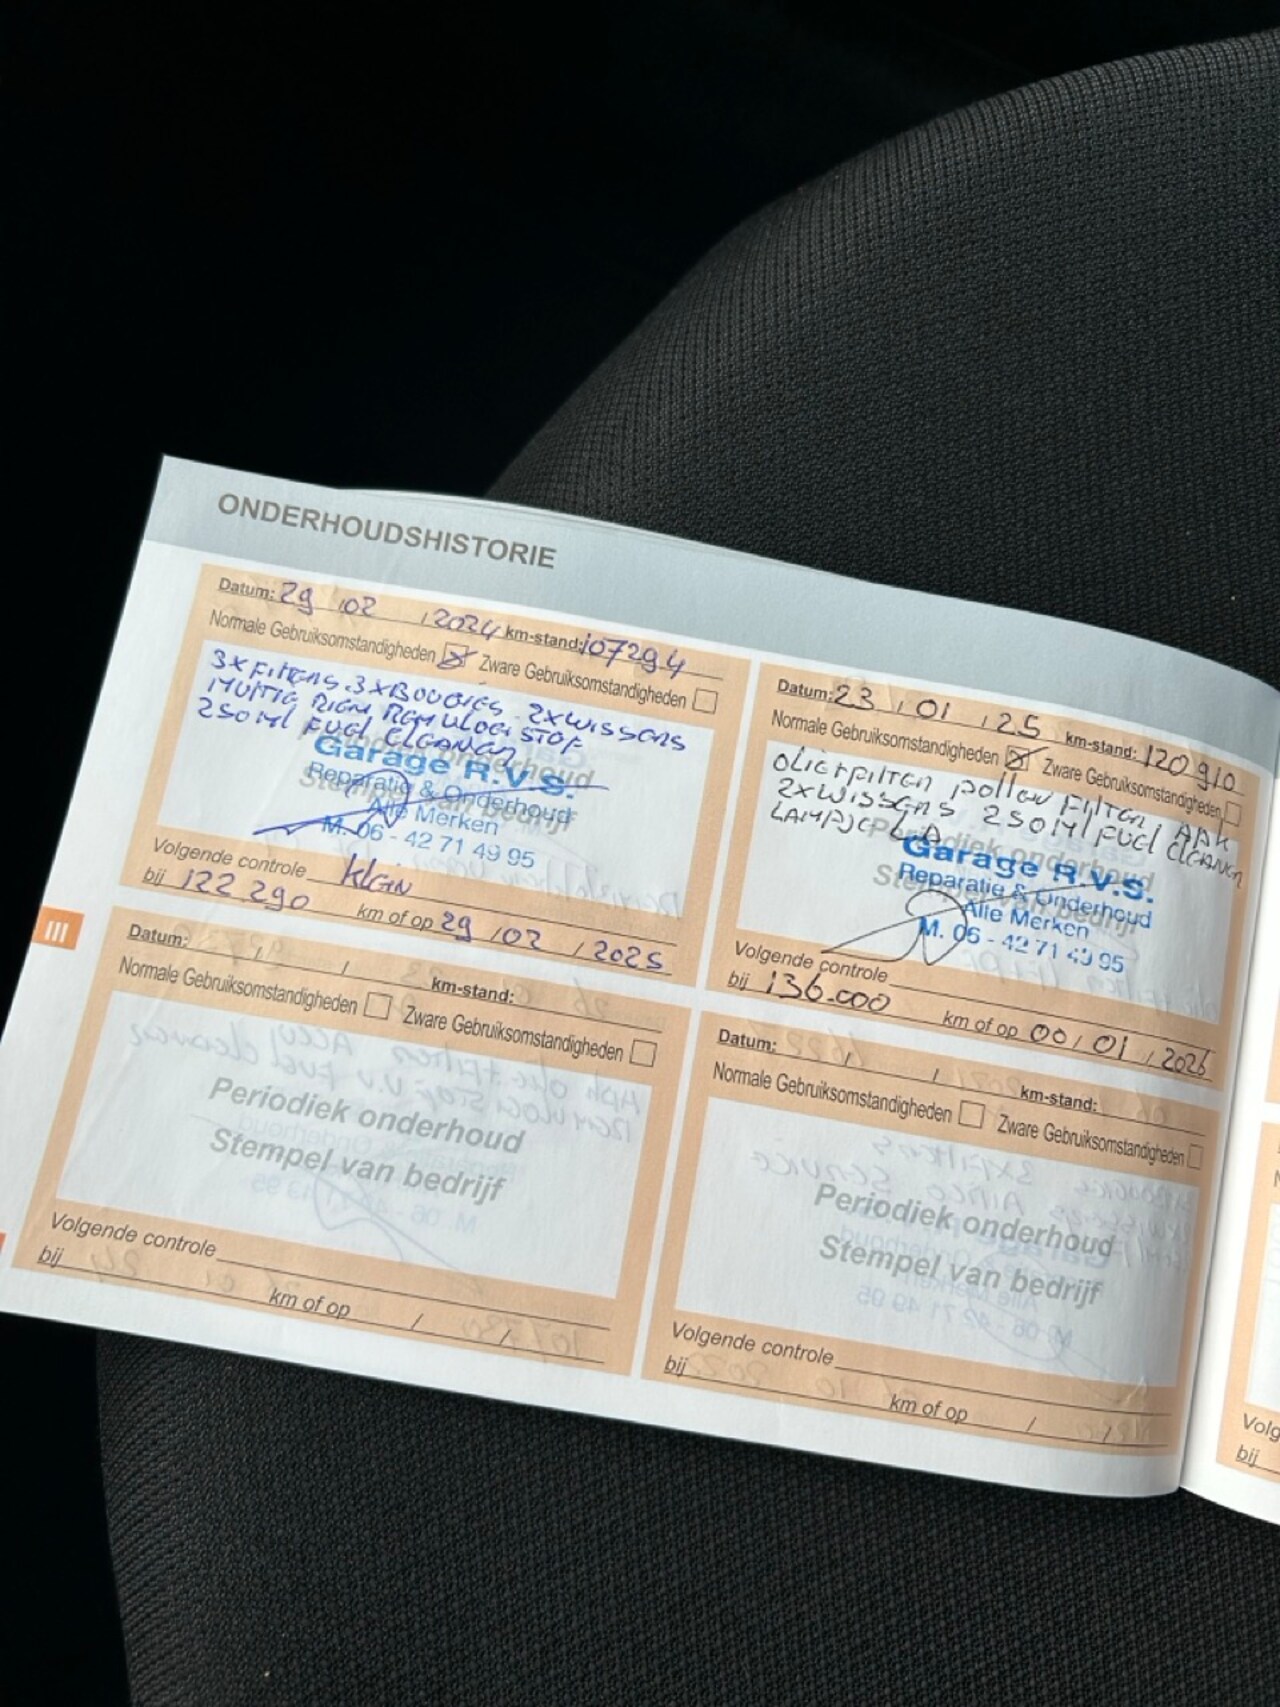 ONDERHOUDSHISTORIE
Datum: 29 / 02 / 2024 km-stand: 107294
Normale Gebruiksomstandigheden ☒ Zware Gebruiksomstandigheden ☐
3x Filters 3x BOUGIES 2x WISSERS
MULTIE RIEM REMVLOEISTOF
250 Ml FUEL CLEANER
Periodiek onderhoud
Stempel van bedrijf
Garage R.V.S.
Reparatie & Onderhoud
Alle Merken
M. 06 - 42 71 49 95
Volgende controle Klein
bij 122.290 km of op 29 / 02 / 2025
Datum: 23 / 01 / 25 km-stand: 120910
Normale Gebruiksomstandigheden ☒ Zware Gebruiksomstandigheden ☐
oliefilter pollen Filter APK
2x WISSERS 250 Ml FUEL CLEANER
LAMPJE
Periodiek onderhoud
Stempel van bedrijf
Garage R.V.S.
Reparatie & Onderhoud
Alle Merken
M. 06 - 42 71 49 95
Volgende controle
bij 136.000 km of op 00 / 01 / 2026
III
Datum: / / km-stand:
Normale Gebruiksomstandigheden ☐ Zware Gebruiksomstandigheden ☐
Periodiek onderhoud
Stempel van bedrijf
Volgende controle
bij km of op / /
Datum: / / km-stand:
Normale Gebruiksomstandigheden ☐ Zware Gebruiksomstandigheden ☐
Periodiek onderhoud
Stempel van bedrijf
Volgende controle
bij km of op / /
Volg
bij